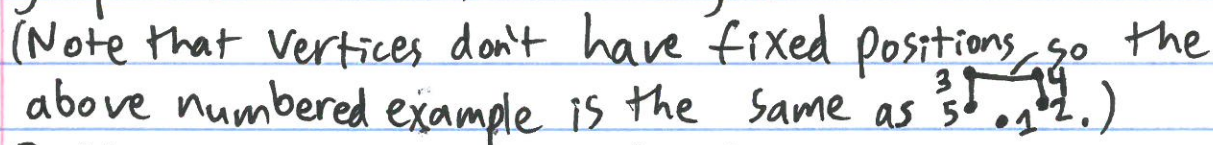 (Note that vertices don't have fixed positions, so the
above numbered example is the same as 3 4 5 1 2.)